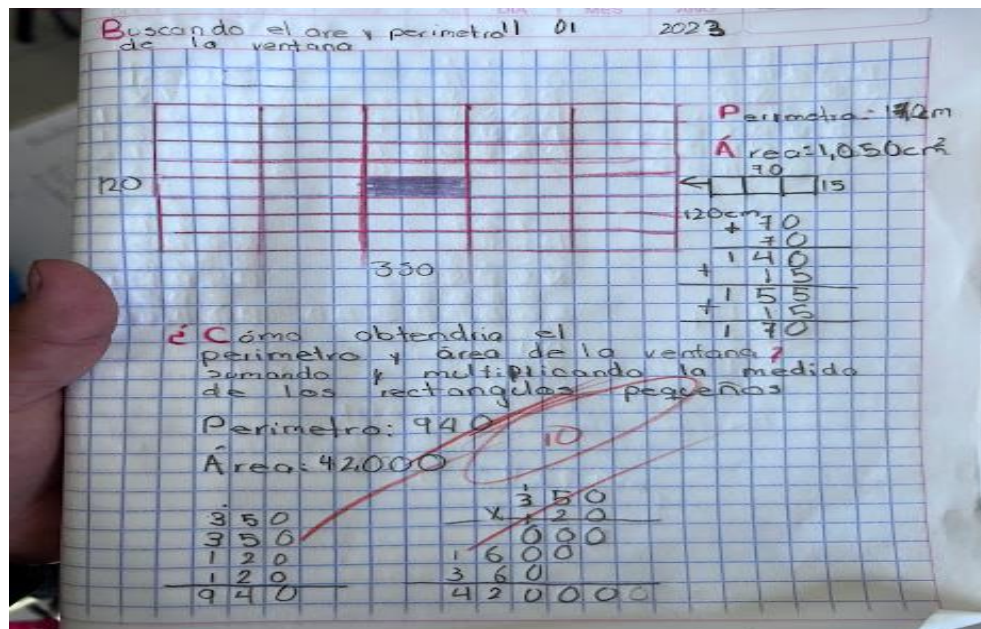 DIA MES AÑO
Buscando el are y perimetro 11 01 2023
de la ventana
Perimetro= 170m
Área=1,050cm²
70
15
120
120cm
+ 70
70
140
+ 15
155
+ 15
170
350
¿Cómo obtendria el
perimetro y área de la ventana?
sumando y multiplicando la medida
de los rectangulos pequeños
Perimetro: 940
Área: 42000
10
350
350
120
120
940
350
x 120
000
1600
360
420000